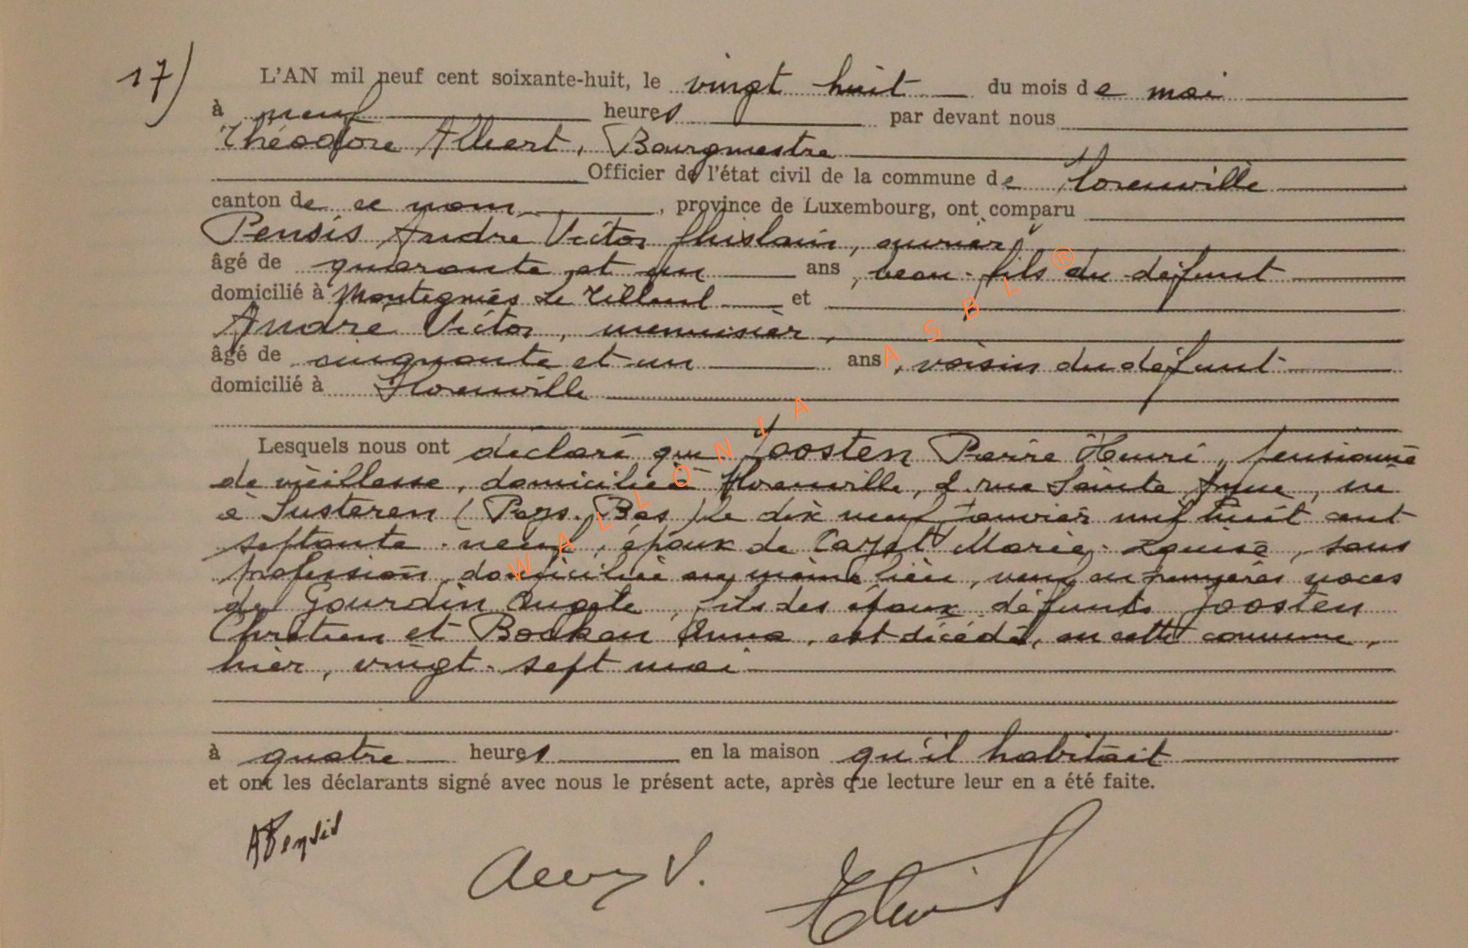 17)
L'AN mil neuf cent soixante-huit, le vingt huit du mois de mai
à neuf heures par devant nous
Théodore Albert, Bourgmestre
Officier de l'état civil de la commune de Florenville
canton de ce nom, province de Luxembourg, ont comparu
Pensis André Victor Ghislain, ouvrier,
âgé de quarante et un ans, beau-fils du défunt
domicilié à Montegnies Le Tilleul et
André Victor, menuisier,
âgé de cinquante et un ans, voisin du défunt
domicilié à Florenville
Lesquels nous ont déclaré que Joosten Pierre Henri, pensionné
de vieillesse, domicilié à Florenville, rue Sainte Anne, né
à Susteren (Pays-Bas) le dix neuf janvier mil huit cent
septante-neuf, époux de Marie-Louise, sans
profession, domiciliée au même lieu, veuf en premières noces
de Gourdin, fils des époux défunts Joosten
Chrétien et Anna, est décédé, en cette commune,
hier, vingt-sept mai
à quatre heures en la maison qu'il habitait
et ont les déclarants signé avec nous le présent acte, après que lecture leur en a été faite.
APensis
WALLONIA ASBL ®